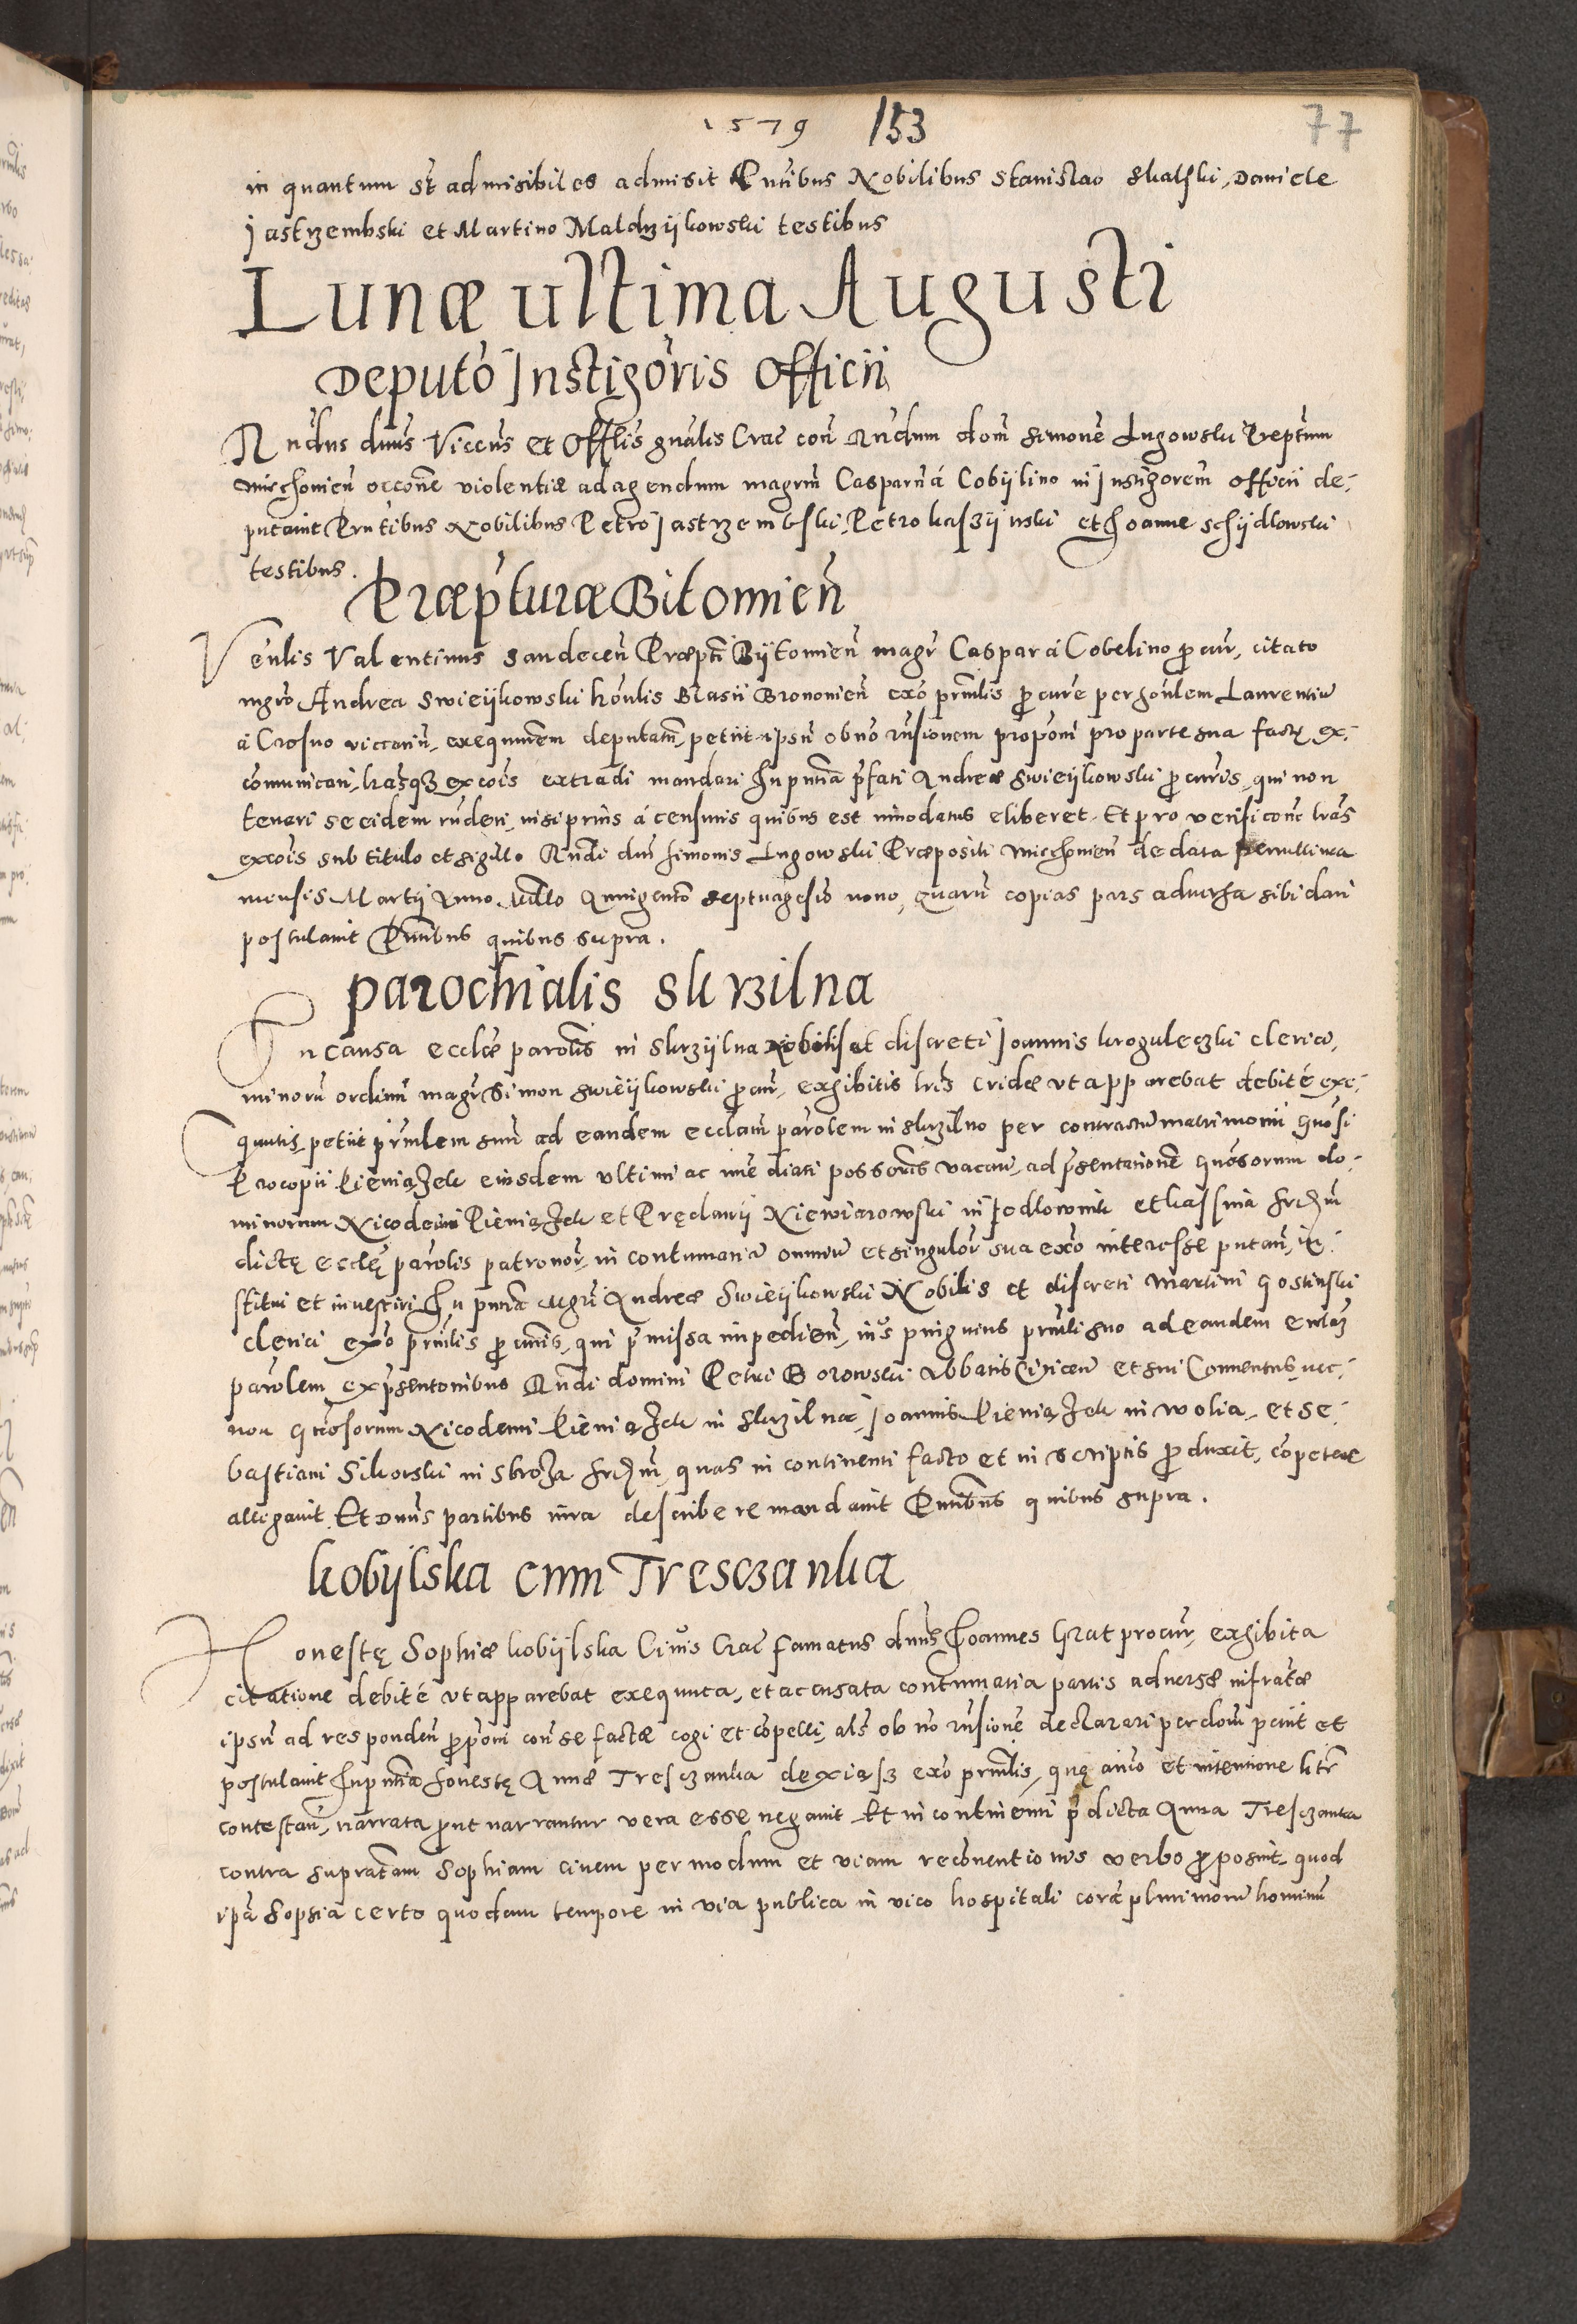 1579 153 77
in quantum sūt admisibiles admisit Pn̄tibus Nobilibus Stanislao Skalski, Daniele
Jastrzembski et Martino Maldrzÿkowski testibus
Lunæ ultima Augusti
Deputō Instigōris Officii
Rn̄dus dnūs Viccn̄s et Offlīs gnālis Crac̄ con̄ Rn̄dum dom̄ Simonē Lugowski Prept̄um
Miechonien̄ occōne violentiæ ad agendum magrm̄ Casparm̄ á Cobÿlino in Instigorem̄ officii de-
putavit Prn̄tibus Nobilibus Petro Jastrzembski, Petro Kaszÿnski et Joanne Schÿdlowski
testibus.
Præp̄turæ Bitomien̄
Vēnlis Valentinus Sandecen̄ Præpt̄i Bÿtomien̄ magr̄ Caspar á Cobelino procur̄, citato
mgrō Andrea Swieÿkowski hōnlis Blasii Brononien̄ exō prn̄lis procure per honl̄em Laurentiū
á Crosno viccariū, exequutem̄ deputatm̄, petiit ipsū ob nō rn̄sionem propōni pro parte sua factę ex-
comunicari, lras̄qꝫ excois̄ extradi mandari In pn̄tia p̄fati Andreæ Swieÿkowski procuris̄, qui non
teneri se eidem rn̄deri, nisi prius á censuris quibus est innodatus eliberet. Et pro verificōne lrās
excois̄ sub titulo et sigillo Rn̄di dnī Simonis Lugowski Præpositi Miechonien̄ de data penultima
mensis Martÿ Anno Mdl̄o Quingentō septuagesiō nono, quarū copias pars adversa sibi dari
postulavit Pn̄tibus quibus supra.
parochialis Skrzilna
In causa ecclǣ parolīs in Skrzÿlna Nobilis et discreti Joannis Kroguleczki clerici,
minorū ordinū magr̄ Simon Swieÿkowski procur̄, exhibitis lrīs cridæ ut apparebat debité exe-
quutis, petiit prn̄lem suū ad eandem ecclam̄ parōlem in Skrzilno per contractū matrimonii Gnōsi
Procopii PieniąZek eiusdem ultimi ac imediati possorīs vacan̄, ad p̄sentationē Gnōsorum do-
minorum Nicodemi PieniąZek et Pręclawii Niewiarowski in Jedlownik et Kassina
dictę ecclę̄ parōlis patronor̄, in contumacia omniū et singulor̄ sua exō interesse putan̄, in-
stitui et investiri In pn̄tia Mgrī Andreæ Swieÿkowski Nobilis et discreti Martini Gostinski
clerici exō prn̄lis procuris̄, qui p̄missa impedien̄, ius pinguius prn̄li suo ad eandem
parōlem, ex p̄sentonibus Rn̄di domini Petri Borowski Abbatis Ciricen̄ et sui Conventus, nec-
non Gnōsorum Nicodemi PieniąZek in Skrzilna, Joannis PieniąZek in Wolia, et Se-
bastiani Sikorski in StroZa quas in continenti facto et in scriptis produxit, cōpetere
allegavit Et Dnūs partibus iura describere mandavit Pn̄tibus quibus supra.
Kobÿlska cum Tresczanka
Honestę Sophiæ Kobÿlska Civis̄ Crac̄ famatus dnūs Joannes Grat procur̄, exhibita
citatione debité ut apparebat exequuta, et accusata contumacia partis adversæ infratǣ
ipsū ad responden̄ propōni con̄ se factæ cogi et cōpelli, als̄ ob nō rn̄sionē declarari per dom̄ petiit et
postulavit In pn̄tia honestę Annæ Tresczanka exō prn̄lis, quę animō et intentione litr̄
contestan̄, narrata prout narrantur vera esse negavit Et in continenti p̄dicta Anna Tresczanka
contra supratam̄ Sophiam civem per modum et viam recōnventionis verbo proposuit, quod
ipā Sophia certo quodam tempore in via publica in vico hospitali corā plurimorū hominū